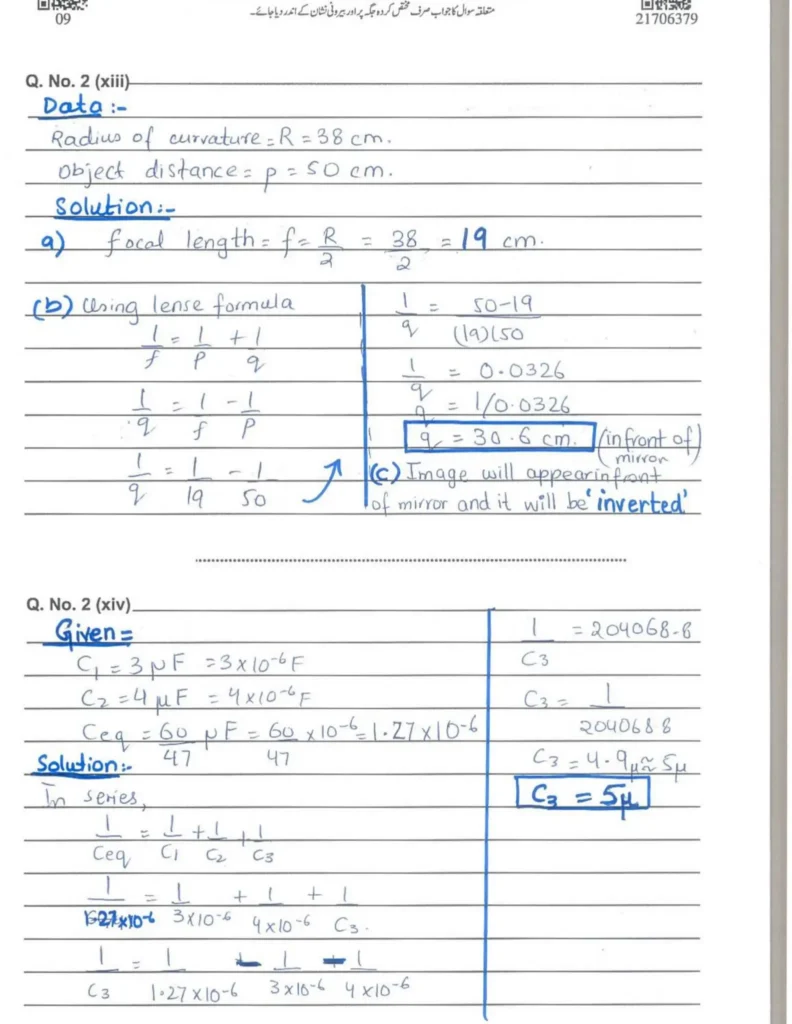 09
متعلقہ سوال کا جواب صرف مختص کردہ جگہ پر اور بیرونی نشان کے اندر دیا جائے۔
21706379
Q. No. 2 (xiii)
Data :-
Radius of curvature = R = 38 cm.
Object distance = p = 50 cm.
Solution:-
a) focal length = f = R/2 = 38/2 = 19 cm.
(b) Using lense formula
1/f = 1/p + 1/q
1/q = 1/f - 1/p
1/q = 1/19 - 1/50
1/q = 50-19/(19)(50
1/q = 0.0326
q = 1/0.0326
q = 30.6 cm. (in front of mirror)
(c) Image will appear in front
of mirror and it will be 'inverted'
Q. No. 2 (xiv)
Given =
C1 = 3 μF = 3x10-6 F
C2 = 4 μF = 4x10-6 F
Ceq = 60/47 μF = 60/47 x10-6 = 1.27x10-6
Solution:-
In series,
1/Ceq = 1/C1 + 1/C2 + 1/C3
1/1.27x10-6 = 1/3x10-6 + 1/4x10-6 + 1/C3.
1/C3 = 1/1.27x10-6 - 1/3x10-6 - 1/4x10-6
1/C3 = 204068.8
C3 = 1/204068 8
C3 = 4.9μ ≈ 5μ
C3 = 5μ